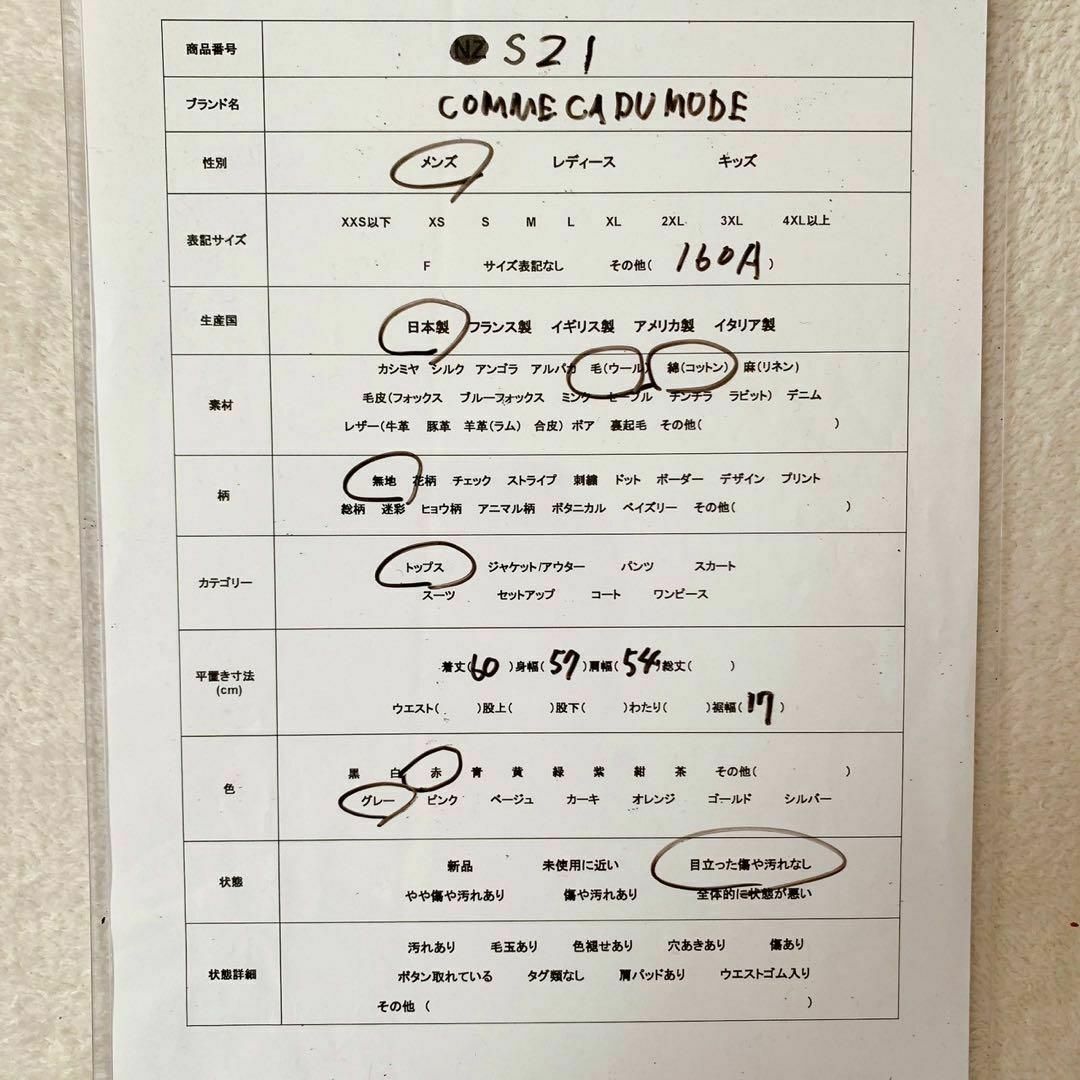 商品番号 NZ S21
ブランド名 COMME CA DU MODE
性別 メンズ レディース キッズ
XXS以下 XS S M L XL 2XL 3XL 4XL以上
表記サイズ
F サイズ表記なし その他( 160A )
生産国 日本製 フランス製 イギリス製 アメリカ製 イタリア製
カシミヤ シルク アンゴラ アルパカ 毛(ウール) 綿(コットン) 麻(リネン)
素材 毛皮(フォックス ブルーフォックス ミンク セーブル チンチラ ラビット) デニム
レザー(牛革 豚革 羊革(ラム) 合皮) ボア 裏起毛 その他( )
無地 花柄 チェック ストライプ 刺繍 ドット ボーダー デザイン プリント
柄
総柄 迷彩 ヒョウ柄 アニマル柄 ボタニカル ペイズリー その他( )
トップス ジャケット/アウター パンツ スカート
カテゴリー
スーツ セットアップ コート ワンピース
着丈(60)身幅(57)肩幅(54)総丈( )
平置き寸法
(cm)
ウエスト( )股上( )股下( )わたり( )裾幅(17)
黒 白 赤 青 黄 緑 紫 紺 茶 その他( )
色
グレー ピンク ベージュ カーキ オレンジ ゴールド シルバー
新品 未使用に近い 目立った傷や汚れなし
状態
やや傷や汚れあり 傷や汚れあり 全体的に状態が悪い
汚れあり 毛玉あり 色褪せあり 穴あきあり 傷あり
状態詳細 ボタン取れている タグ類なし 肩パッドあり ウエストゴム入り
その他 ( )